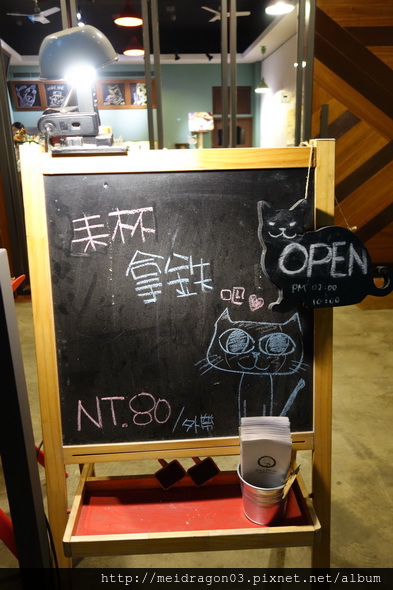 來杯
拿鐵
吧
NT.80/外帶
OPEN
PM 02:00
10:00
http://meidragon03.pixnet.net/album